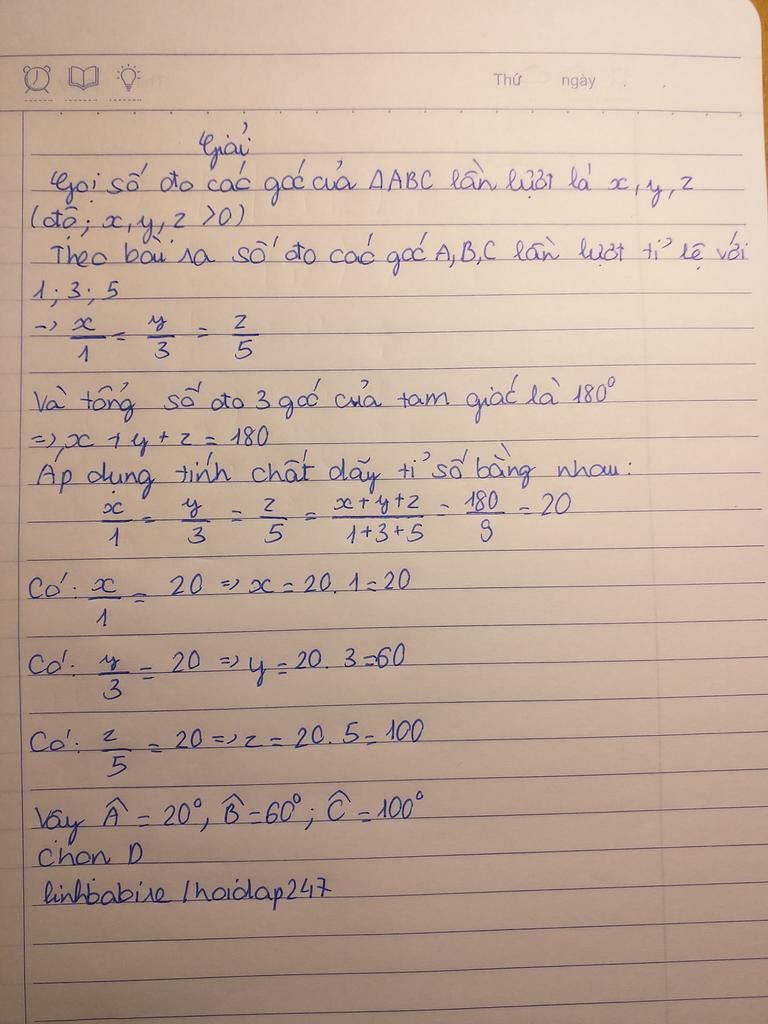 Thứ ngày
Giải
Gọi số đo các góc của ΔABC lần lượt là x, y, z
(độ; x, y, z >0)
Theo bài ra số đo các góc A, B, C lần lượt tỉ lệ với
1; 3; 5
-> x/1 = y/3 = z/5
Và tổng số đo 3 góc của tam giác là 180°
=> x + y + z = 180
Áp dụng tính chất dãy tỉ số bằng nhau:
x/1 = y/3 = z/5 = x+y+z/1+3+5 = 180/9 = 20
Có: x/1 = 20 => x = 20. 1 = 20
Có: y/3 = 20 => y = 20. 3 = 60
Có: z/5 = 20 => z = 20. 5 = 100
Vậy Â = 20°, B̂ = 60°; Ĉ = 100°
Chọn D
linhbabie /hoidap247